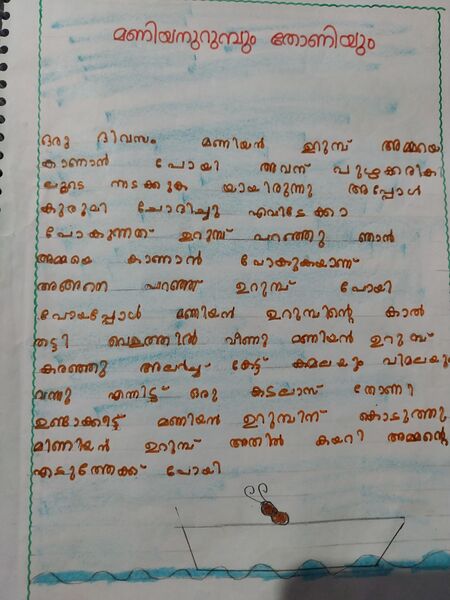 മണിയനുറുമ്പും തോണിയും
ഒരു ദിവസം മണിയൻ ഉറുമ്പ് അമ്മയെ
കാണാൻ പോയി അവന് പുഴക്കരിക
ലൂടെ നടക്കുക യായിരുന്നു അപ്പോൾ
കുരുവി ചോദിച്ചു എവിടേക്കാ
പോകുന്നത് ഉറുമ്പ് പറഞ്ഞു ഞാൻ
അമ്മയെ കാണാൻ പോകുകയാണ്
അങ്ങനെ പറഞ്ഞ് ഉറുമ്പ് പോയി
പോയപ്പോൾ മണിയൻ ഉറുമ്പിന്റെ കാൽ
തട്ടി വെള്ളത്തിൽ വീണു മണിയൻ ഉറുമ്പ്
കരഞ്ഞു അലർച്ച കേട്ട് കമലയും വിമലയും
വന്നു എന്നിട്ട് ഒരു കടലാസ് തോണി
ഉണ്ടാക്കീട്ട് മണിയൻ ഉറുമ്പിന് കൊടുത്തു
മിണിയൻ ഉറുമ്പ് അതിൽ കയറി അമ്മന്റെ
എടുത്തേക്ക് പോയി